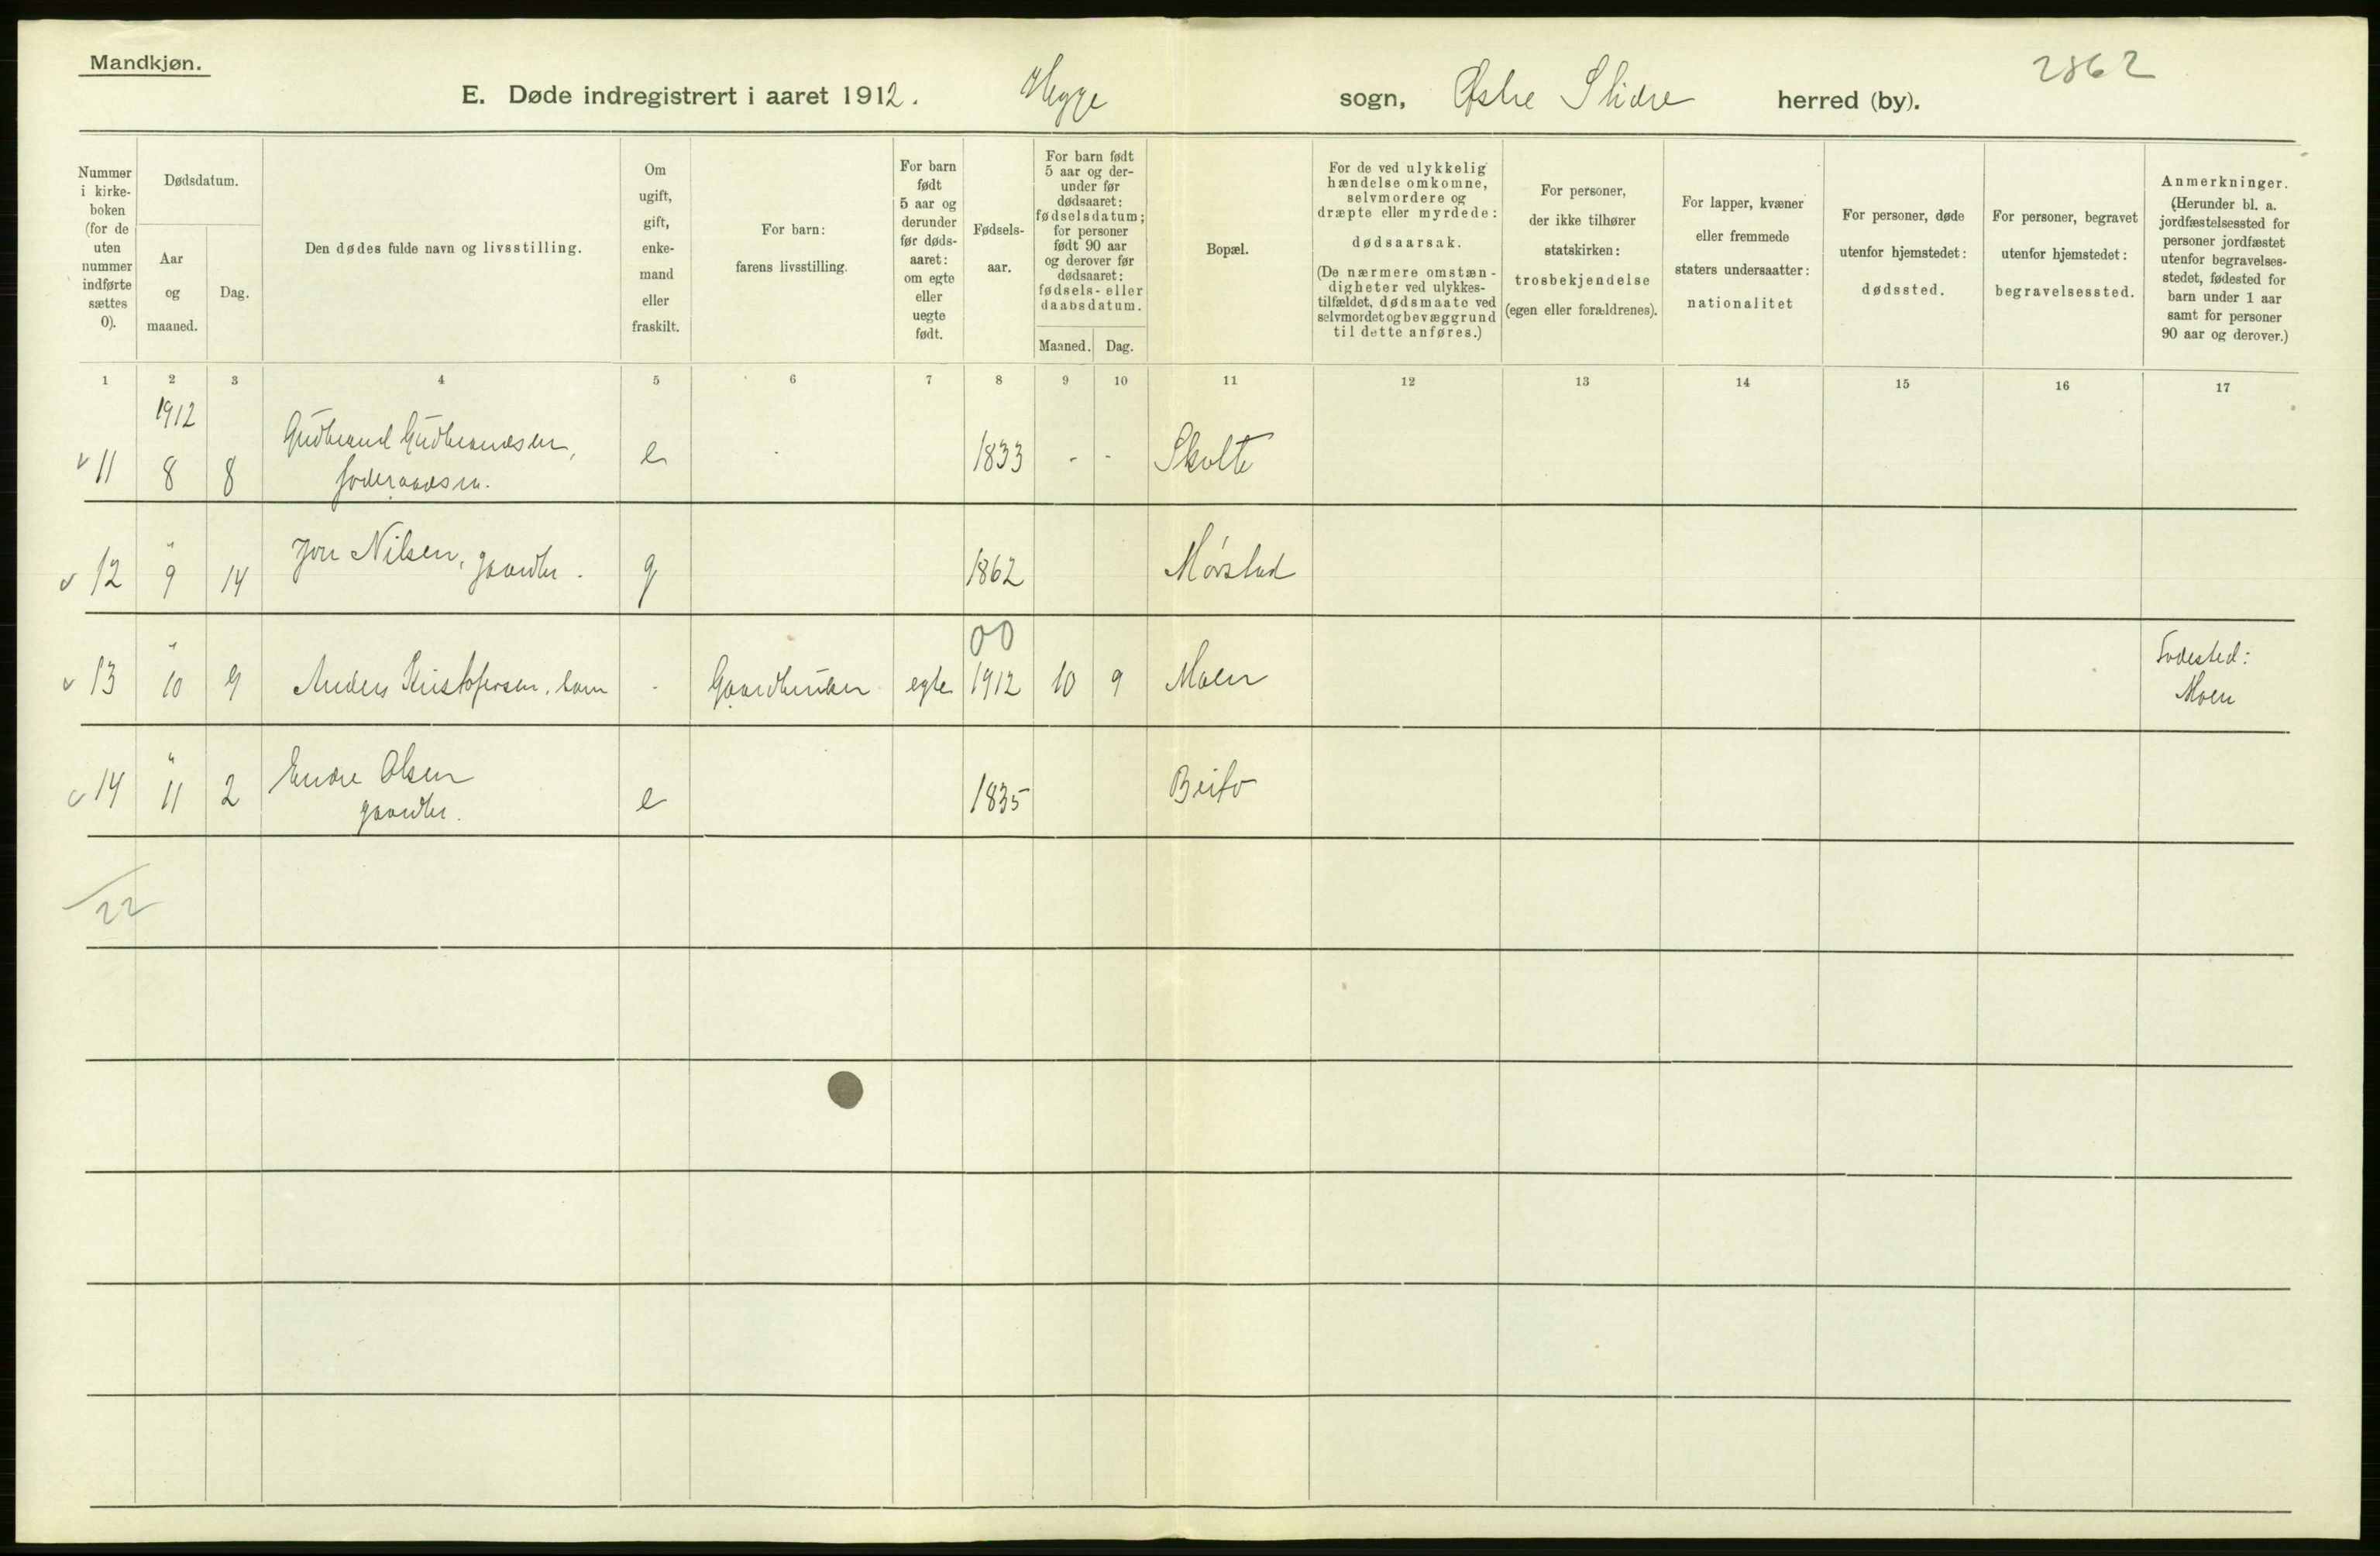 Mandkjøn.
2862
E. Døde indregistrert i aaret 1912. Hegge sogn, Østre Slidre herred (by).
Nummer
i kirke-
boken
(for de
uten
nummer
indførte
sættes
0).
Dødsdatum.
Aar
og
maaned.
Dag.
Den dødes fulde navn og livsstilling.
Om
ugift,
gift,
enke-
mand
eller
fraskilt.
For barn:
farens livsstilling.
For barn
født
5 aar og
derunder
før døds-
aaret:
om egte
eller
uegte
født.
Fødsels-
aar.
For barn født
5 aar og der-
under før
dødsaaret:
fødselsdatum;
for personer
født 90 aar
og derover før
dødsaaret:
fødsels- eller
daabsdatum.
Maaned. Dag.
Bopæl.
For de ved ulykkelig
hændelse omkomne,
selvmordere og
dræpte eller myrdede:
dødsaarsak.
(De nærmere omstæn-
digheter ved ulykkes-
tilfældet, dødsmaate ved
selvmordet og bevæggrund
til dette anføres.)
For personer,
der ikke tilhører
statskirken:
trosbekjendelse
(egen eller forældrenes).
For lapper, kvæner
eller fremmede
staters undersaatter:
nationalitet
For personer, døde
utenfor hjemstedet:
dødssted.
For personer, begravet
utenfor hjemstedet:
begravelsessted.
Anmerkninger.
(Herunder bl. a.
jordfæstelsessted for
personer jordfæstet
utenfor begravelses-
stedet, fødested for
barn under 1 aar
samt for personer
90 aar og derover.)
1 2 3 4 5 6 7 8 9 10 11 12 13 14 15 16 17
1912
Gudbrand Gudbrandsen,
11 8 8 e - 1833 - - Skolte
foderaadsm.
12 " 9 14 Jon Nilsen, gaardbr. g 1862 Mørstad
00
13 " 10 9 Anders Kristofersen, barn - Gaardbruker egte 1912 10 9 Moen Fødested:
Moen
14 " 11 2 Endre Olsen e 1835 Beito
gaardbr.
22